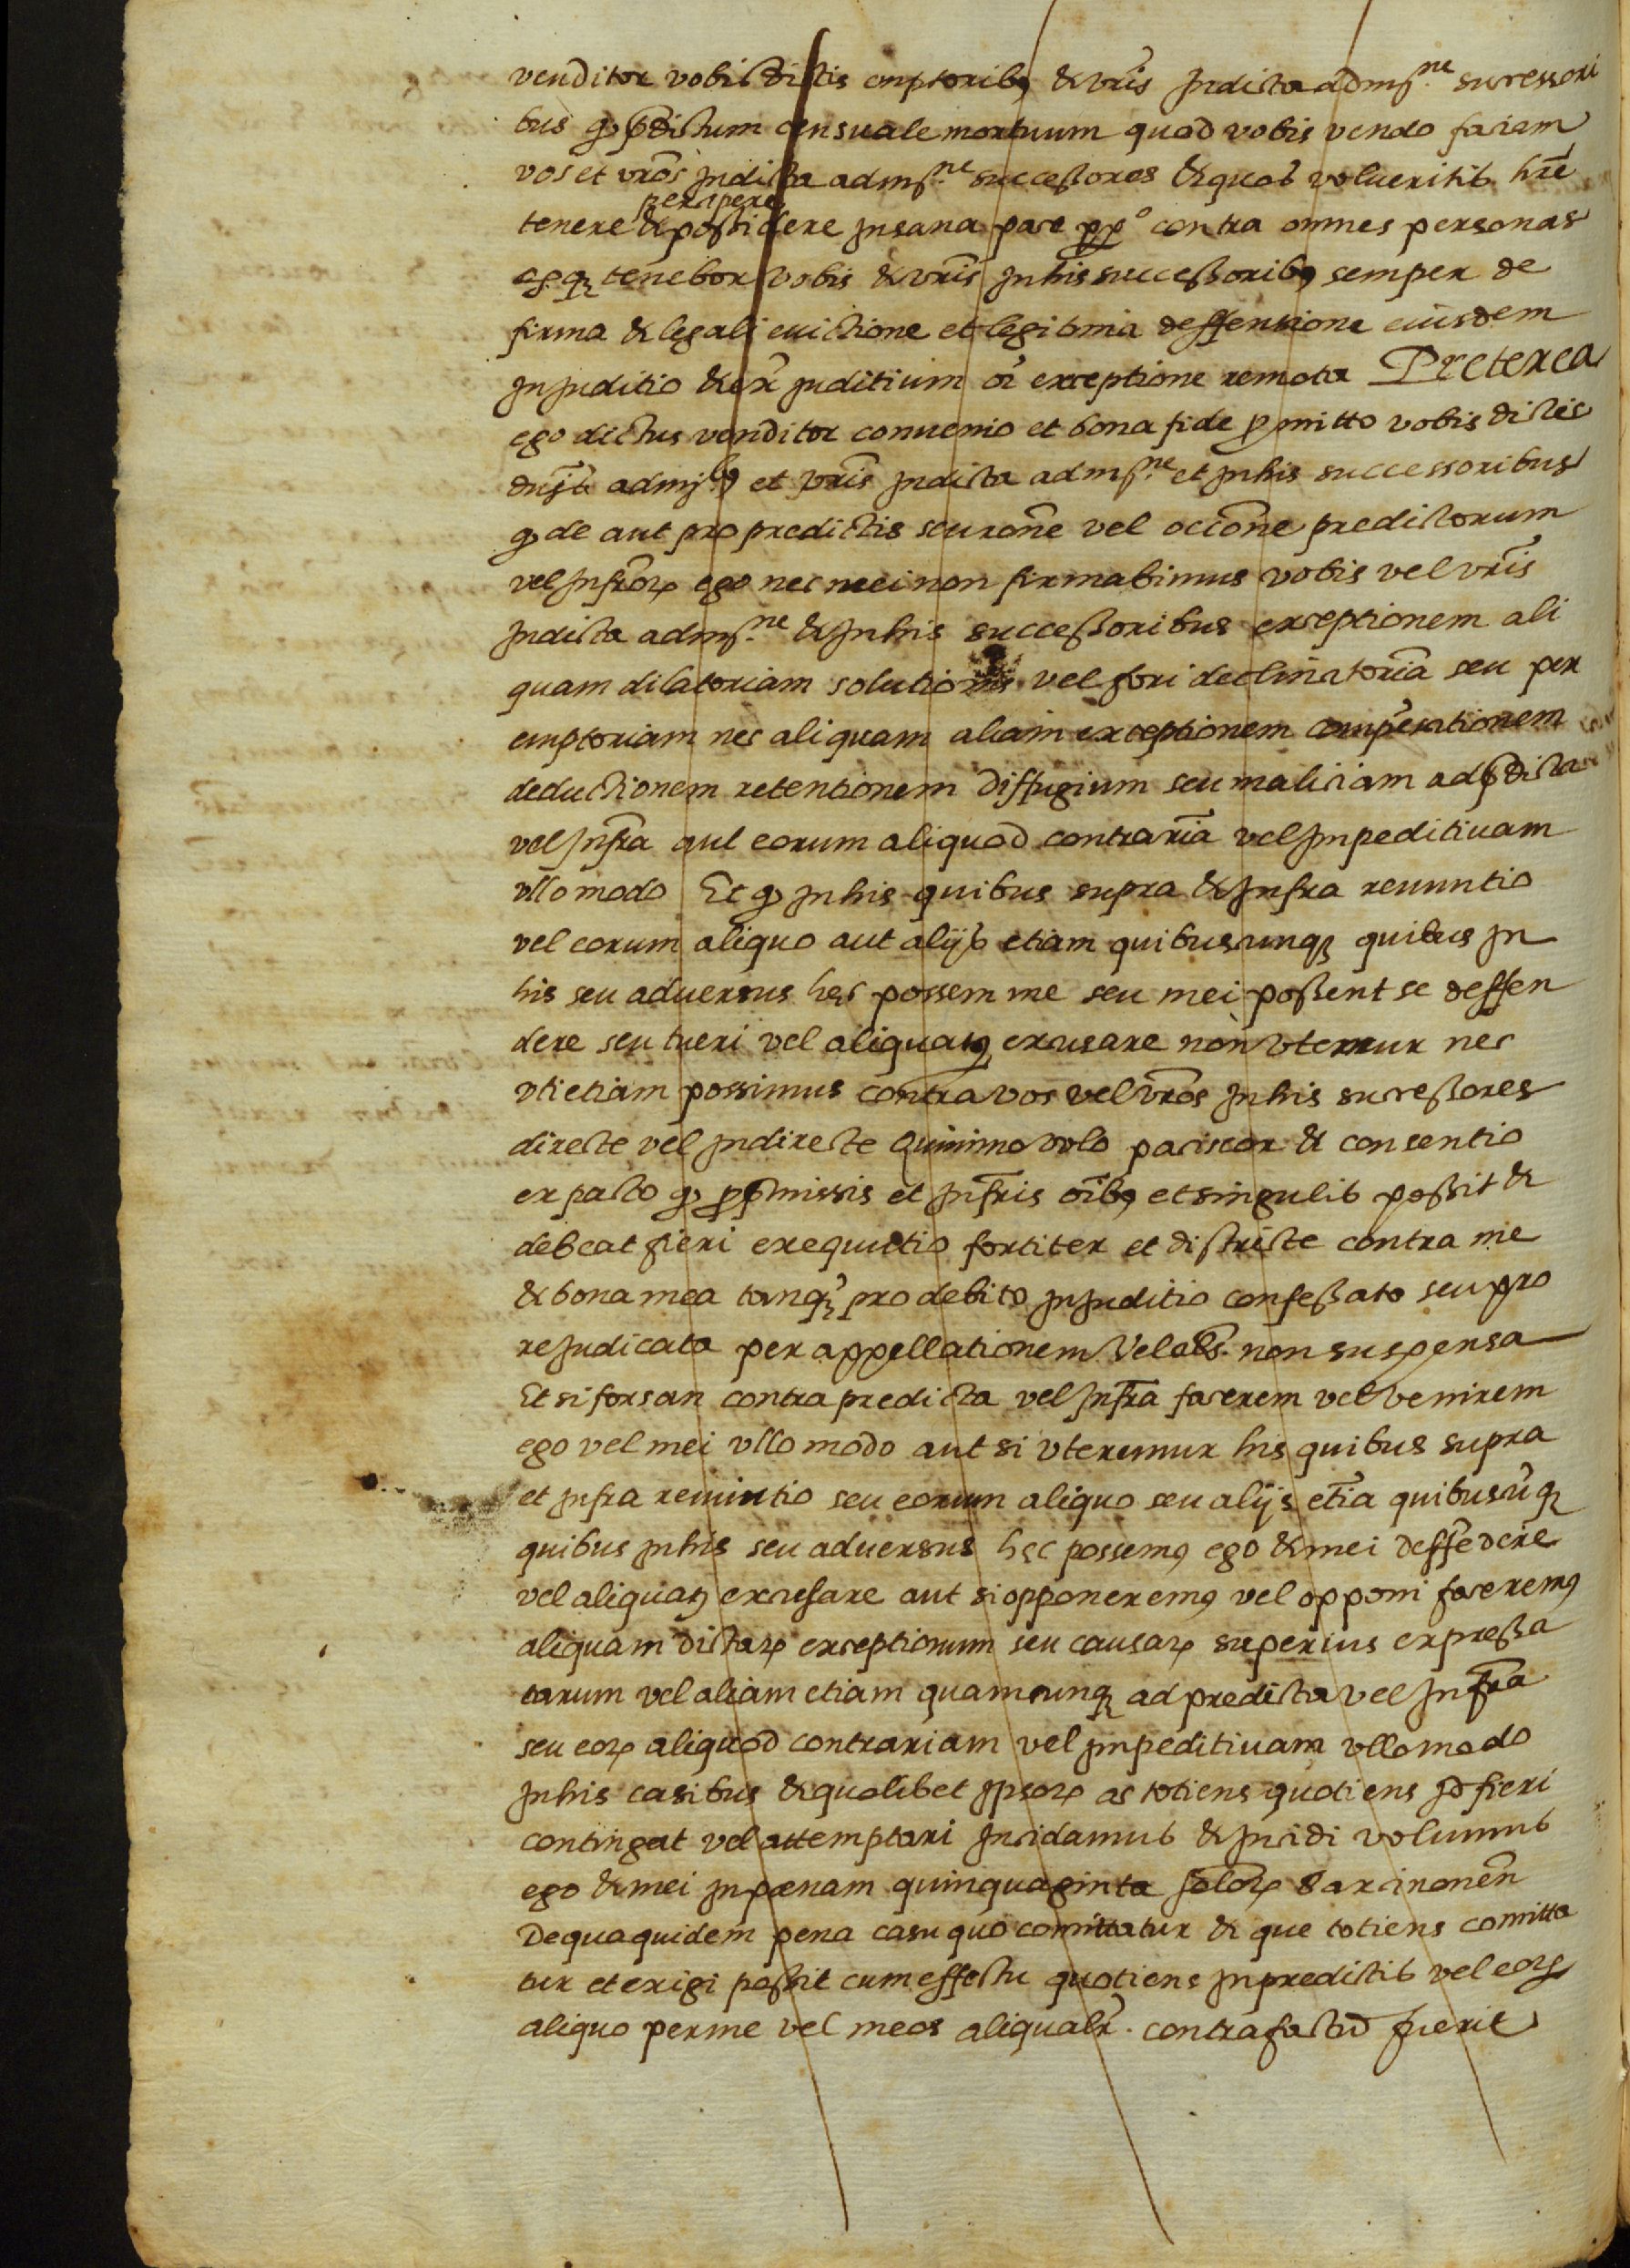 venditor vobis dictis emptoribꝯ & vr̄is In dicta admꝭ.ne successori
bus ꝙ p̄dictum censuale mortuum quod vobis vendo faciam
vos et vr̄os In dicta admꝭ.ne successores & quos volueritis hr̄e
percipere
tenere & possidere In sana pace ꝑpº contra omnes personas
tenebor vobis & vr̄is In his successoribꝯ semper de
firma & legali euictione et legitimā deffensione eiusdem
In Juditio & ex̄ Juditium oī exceptione remota Preterea
ego dictus venditor conuenio et bona fide ꝓmitto vobis dictis
dn̄is admꝭ.bꝯ et vr̄is In dicta admꝭ.ne et In his successoribus
ꝙ de aut pro predictis seu rōne vel occōne predictorum
vel Infrōꝝ ego nec mei non firmabimus vobis vel vr̄is
In dicta admꝭ.ne & In his successoribus exceptionem ali
quam dilatoriam solutionis vel fori declinatoriā seu per
emptoriam nec aliquam aliam exceptionem compēsationem
deductionem retentionem diffugium seu maliciam ad p̄dicta
vel Infr̄a aut eorum aliquod contrariā vel Impeditiuam
vllo modo Et ꝙ In his quibus supra & Infra renuntio
vel eorum aliquo aut alijs etiam quibuscunqꝫ quibus In
his seu aduersus hęc possem me seu mei possent se deffen
dere seu tueri vel aliquatꝯ excusare non vtemur nec
vti etiam possimus contra vos vel vr̄os In his successores
directe vel Indirecte Quinimo volo paciscor & consentio
ex pacto ꝙ ꝓ p̄missis et Infr̄is oībꝯ et singulis possit &
debeat fieri exequutio fortiter et districte contra me
& bona mea tanqꝫ̄ pro debito In Juditio confessato seu pro
re Judicata per appellationem Vel als̄. non suspensa
Et si forsan contra predicta vel Infr̄a facerem vel venirem
ego vel mei vllo modo aut si vteremur his quibus supra
et Infra renuntio seu eorum aliquo seu alijs etiā quibuscūqꝫ
quibus In his seu aduersus hęc possemꝯ ego & mei deffēdere
vel aliquatꝯ excusare aut si opponeremꝯ vel opponi faceremꝯ
aliquam dictaꝝ exceptionum seu causaꝝ superius expressa
tarum vel aliam etiam quamcunqꝫ ad predicta vel Infr̄a
seu eoꝝ aliquod contrariam vel Impeditiuam vllo modo
In his casibus & quolibet Ipsoꝝ ac totiens quotiens Id fieri
contingat vel attemptari Incidamus & Incidi volumus
ego & mei In pœnam quinquaginta soloꝝ Barcinonen̄
De qua quidem pena casu quo comittatur & que totiens comitta
tur et exigi possit cum effectu quotiens In predictis vel eoꝝ
aliquo per me vel meos aliqualr̄. contrafactū fuerit